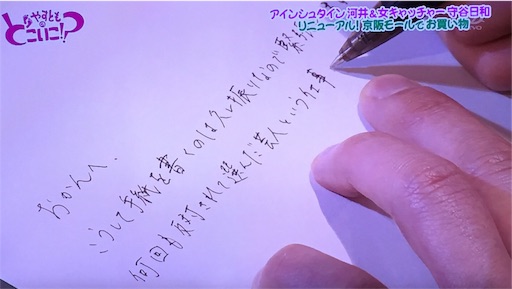 やすとものどこいこ!?
アインシュタイン河井&女キャッチャー守谷日和
リニューアル!京阪モールでお買い物…
おかんへ、
こうして手紙を書くのは久し振りなので緊
何回も反対されて選んだ芸人という仕事